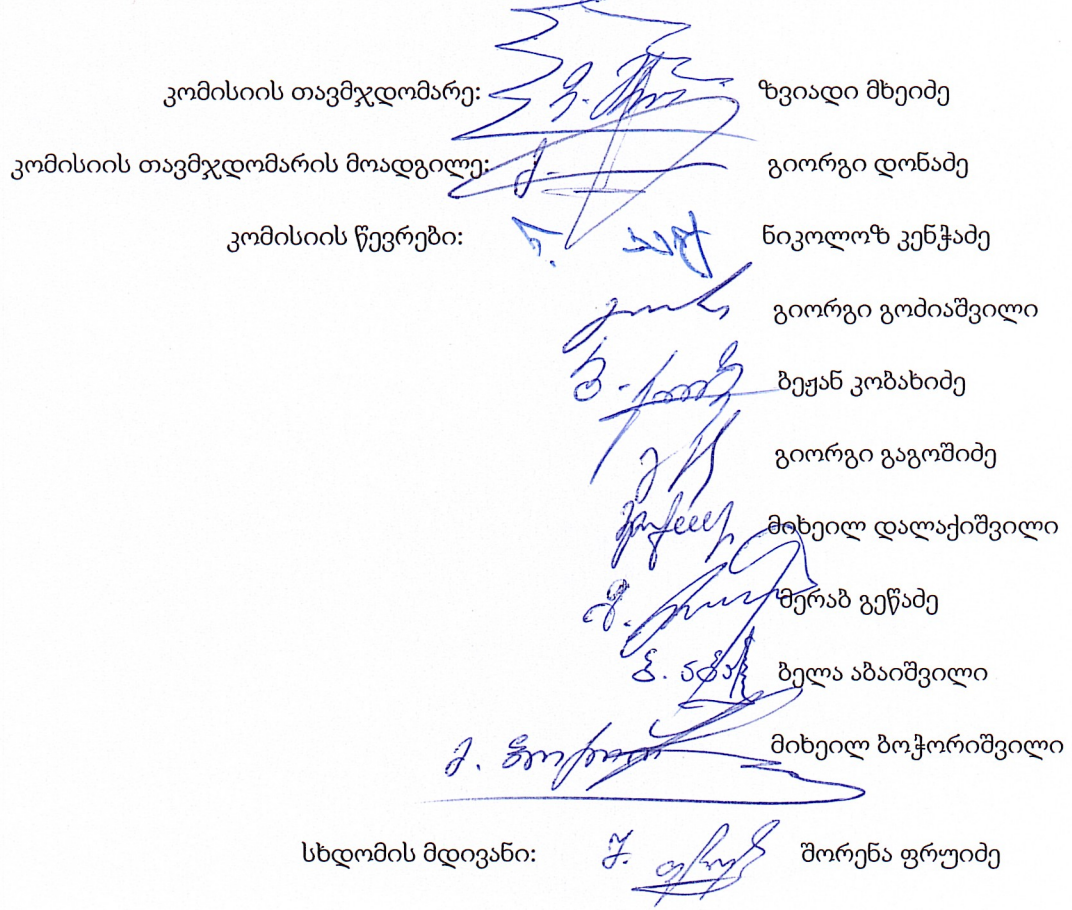 კომისიის თავმჯდომარე: ზვიადი მხეიძე
კომისიის თავმჯდომარის მოადგილე: გიორგი დონაძე
კომისიის წევრები: ნიკოლოზ კენჭაძე
გიორგი გოძიაშვილი
ბეჟან კობახიძე
გიორგი გაგოშიძე
მიხეილ დალაქიშვილი
მერაბ გეწაძე
ბელა აბაიშვილი
მიხეილ ბოჭორიშვილი
სხდომის მდივანი: შორენა ფრუიძე